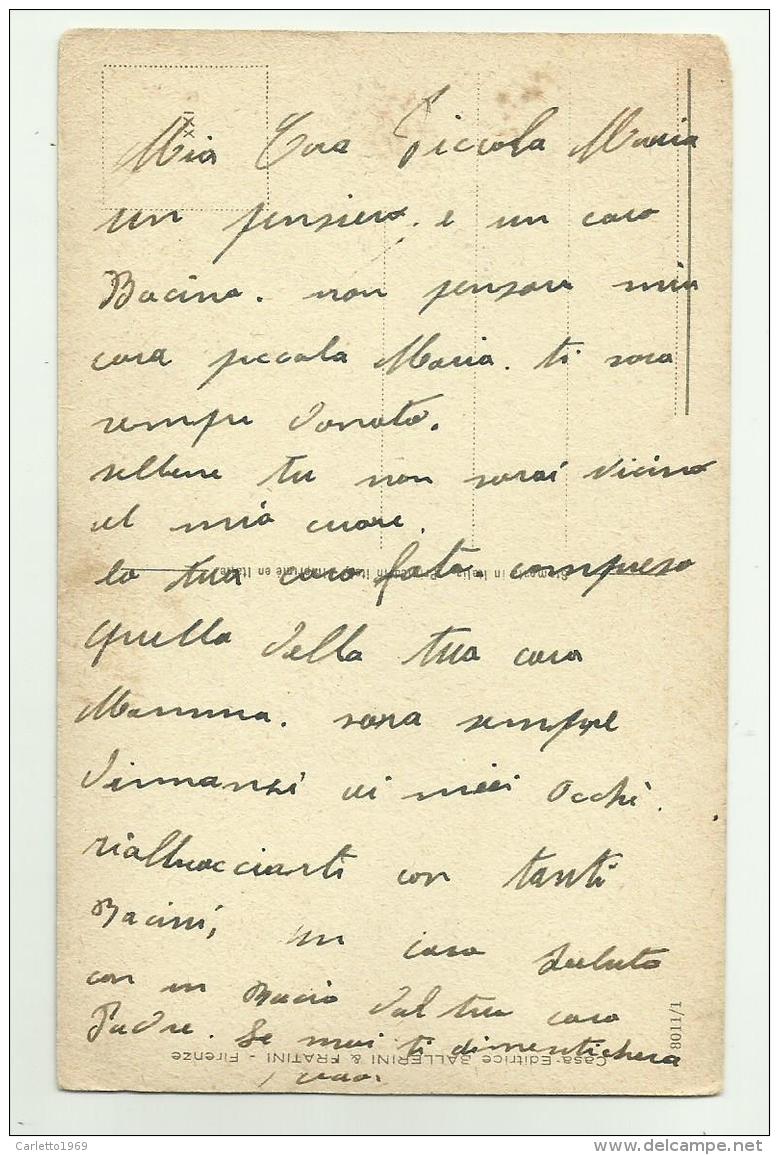 Mia Cara Piccola Maria
un pensiero. e un caro
Bacino. non pensare mia
cara piccola Maria. ti sara
sempre donato.
sebbene tu non sarai vicino
al mio cuore.
la tua cara foto compreso
quella della tua cara
Mamma. sara sempre
dinnanzi ai miei occhi.
riabbracciarti con tanti
Bacini, un caro saluto
con un Bacio dal tuo caro
Padre. Se mai ti dimentichera
ciao.
XXI
Stampato in Italia Printed in Italy Imprimé en Italie
Casa Editrice BALLERINI & FRATINI - Firenze
8011/1
Carletto1969
delcampe.net